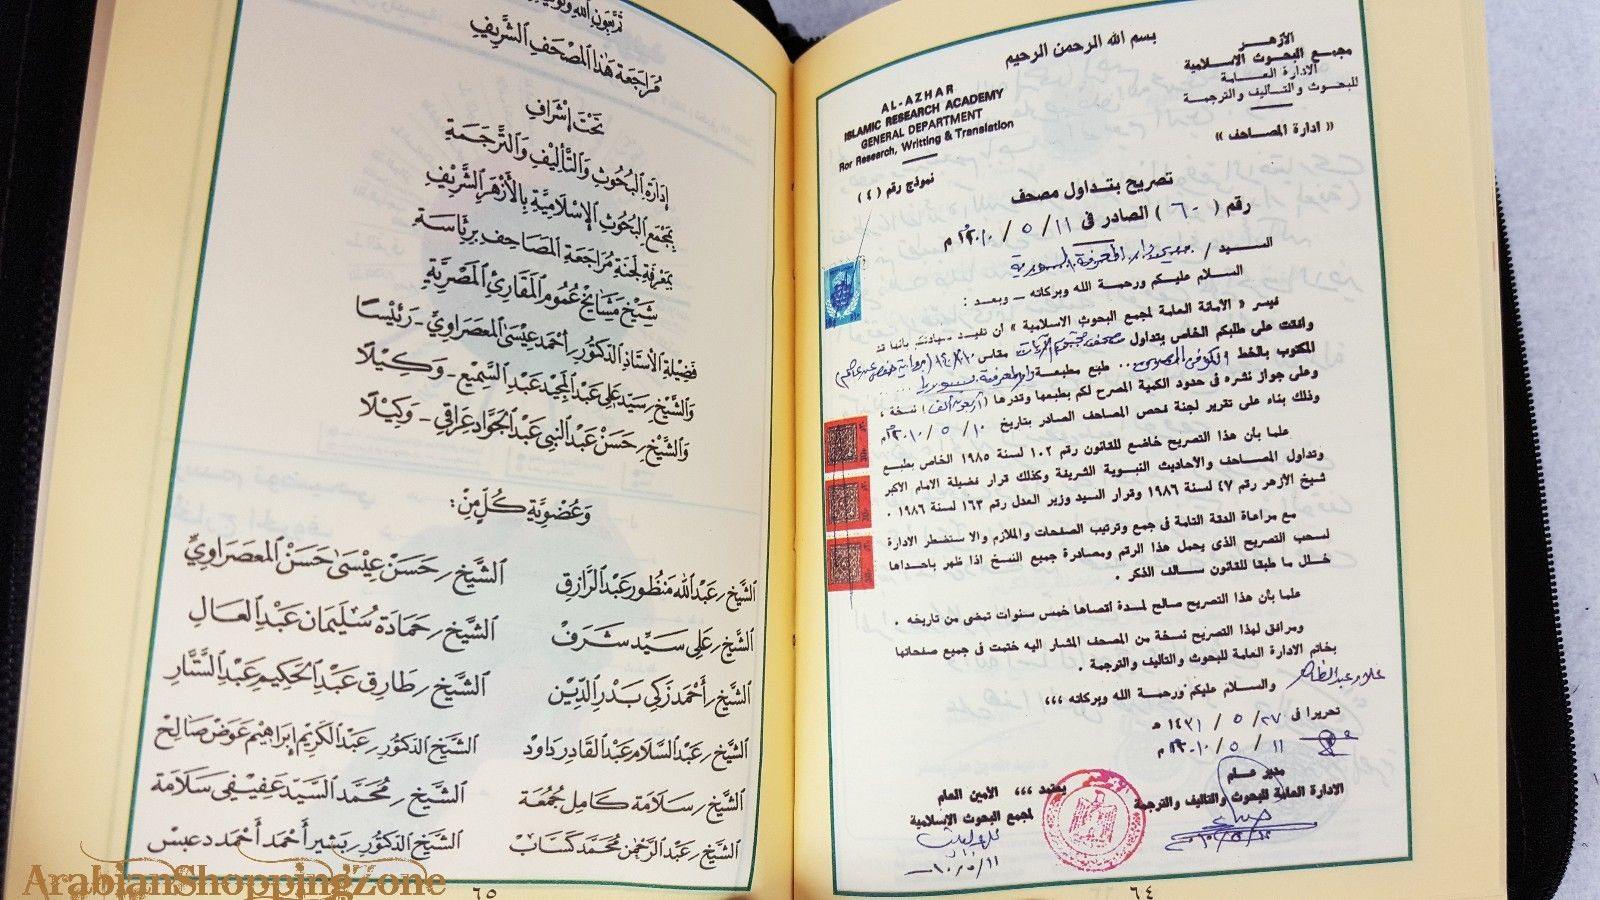 بسم الله الرحمن الرحيم
الأزهر
مجمع البحوث الاسلامية
الادارة العامة
للبحوث والتأليف والترجمة
« ادارة المصاحف »
AL-AZHAR
ISLAMIC RESEARCH ACADEMY
GENERAL DEPARTMENT
Ror Research, Writting & Translation
نموذج رقم ( ٤ )
تصريح بتداول مصحف
رقم ( ٦٠ ) الصادر فى ١١ / ٥ / ٢٠١٠ م
السيد / دار المعرفة السورية
السلام عليكم ورحمة الله وبركاته — وبعد :
فيسر « الأمانة العامة لمجمع البحوث الاسلامية » أن تفيد سيادتكم بأنها قد
وافقت على طلبكم الخاص بتداول مصحف مقاس
المكتوب بالخط طبع بمطبعة دار المعرفة سوريا
وعلى جواز نشره فى حدود الكمية المصرح لكم بطبعها وقدرها ( أربعون ألف ) نسخة ،
وذلك بناء على تقرير لجنة فحص المصاحف الصادر بتاريخ ١٠ / ٥ / ٢٠١٠ م
علما بأن هذا التصريح خاضع للقانون رقم ١٠٢ لسنة ١٩٨٥ الخاص بطبع
وتداول المصاحف والأحاديث النبوية الشريفة وكذلك قرار فضيلة الامام الاكبر
شيخ الأزهر رقم ٤٧ لسنة ١٩٨٦ وقرار السيد وزير العدل رقم ١٦٢ لسنة ١٩٨٦ .
مع مراعاة الدقة التامة فى جمع وترتيب الصفحات والملازم والا ستضطر الادارة
لسحب التصريح الذى يحمل هذا الرقم ومصادرة جميع النسخ اذا ظهر باحداها
خلل ما طبقا للقانون سالف الذكر .
علما بأن هذا التصريح صالح لمدة اقصاها خمس سنوات تمضى من تاريخه .
ومرافق لهذا التصريح نسخة من المصحف المشار اليه ختمت فى جميع صفحاتها
بخاتم الادارة العامة للبحوث والتأليف والترجمة .
والسلام عليكم ورحمة الله وبركاته ،،،
تحريرا فى ٢٧ / ٥ / ١٤٣١ هـ
١١ / ٥ / ٢٠١٠ م
مدير عام
الادارة العامة للبحوث والتأليف والترجمة
يعتمد ،،، الأمين العام
لمجمع البحوث الاسلامية
٦٤
مُرَاجَعَة هَٰذَا المُصْحَفِ الشَّرِيفِ
تَحْتَ إِشْرَافِ
إِدَارَةِ البُحُوثِ وَالتَّأْلِيفِ وَالتَّرْجَمَةِ
بِمَجْمَعِ البُحُوثِ الإِسْلَامِيَّةِ بِالأَزْهَرِ الشَّرِيفِ
بِمَعْرِفَةِ لَجْنَةِ مُرَاجَعَةِ المَصَاحِفِ بِرِئَاسَةِ
شَيْخِ مَشَايِخِ عُمُومِ المَقَارِئِ المَصْرِيَّةِ
فَضِيلَةِ الأُسْتَاذِ الدُّكْتُورِ ، أَحْمَد عِيسَى المَعْصَرَاوِيِّ - رَئِيسًا
وَالشَّيْخِ ، سَيِّد عَلِي عَبْدُ المَجِيد عَبْدُ السَّمِيعِ - وَكِيلًا
وَالشَّيْخِ ، حَسَنْ عَبْدُ النَّبِي عَبْدُ الجَوَّاد عِرَاقِي - وَكِيلًا
وَعُضْوِيَّةِ كُلٍّ مِنْ :
الشَّيْخِ ، عَبْدُ الله مَنْظُور عَبْدُ الرَّازِق الشَّيْخِ ، حَسَنْ عِيسَى حَسَنْ المَعْصَرَاوِيِّ
الشَّيْخِ ، عَلِي سَيِّد شَرَفْ الشَّيْخِ ، حَمَادَة سُلَيْمَان عَبْدُ العَالِ
الشَّيْخِ ، أَحْمَد زَكِي بَدْرُ الدِّينِ الشَّيْخِ ، طَارِق عَبْدُ الحَكِيمِ عَبْدُ السَّتَّارِ
الشَّيْخِ ، عَبْدُ السَّلَام عَبْدُ القَادِر دَاوُد الشَّيْخِ الدُّكْتُورِ ، عَبْدُ الكَرِيم إِبْرَاهِيم عَوَض صَالِحْ
الشَّيْخِ ، سَلَامَة كَامِل جُمُعَة الشَّيْخِ ، مُحَمَّد السَّيِّد عَفِيفِي سَلَامَة
الشَّيْخِ ، عَبْدُ الرَّحْمَن مُحَمَّد كَسَابْ الشَّيْخِ الدُّكْتُورِ ، بَشِير أَحْمَد أَحْمَد دِعْبِسْ
٦٥
ArabianShoppingZone